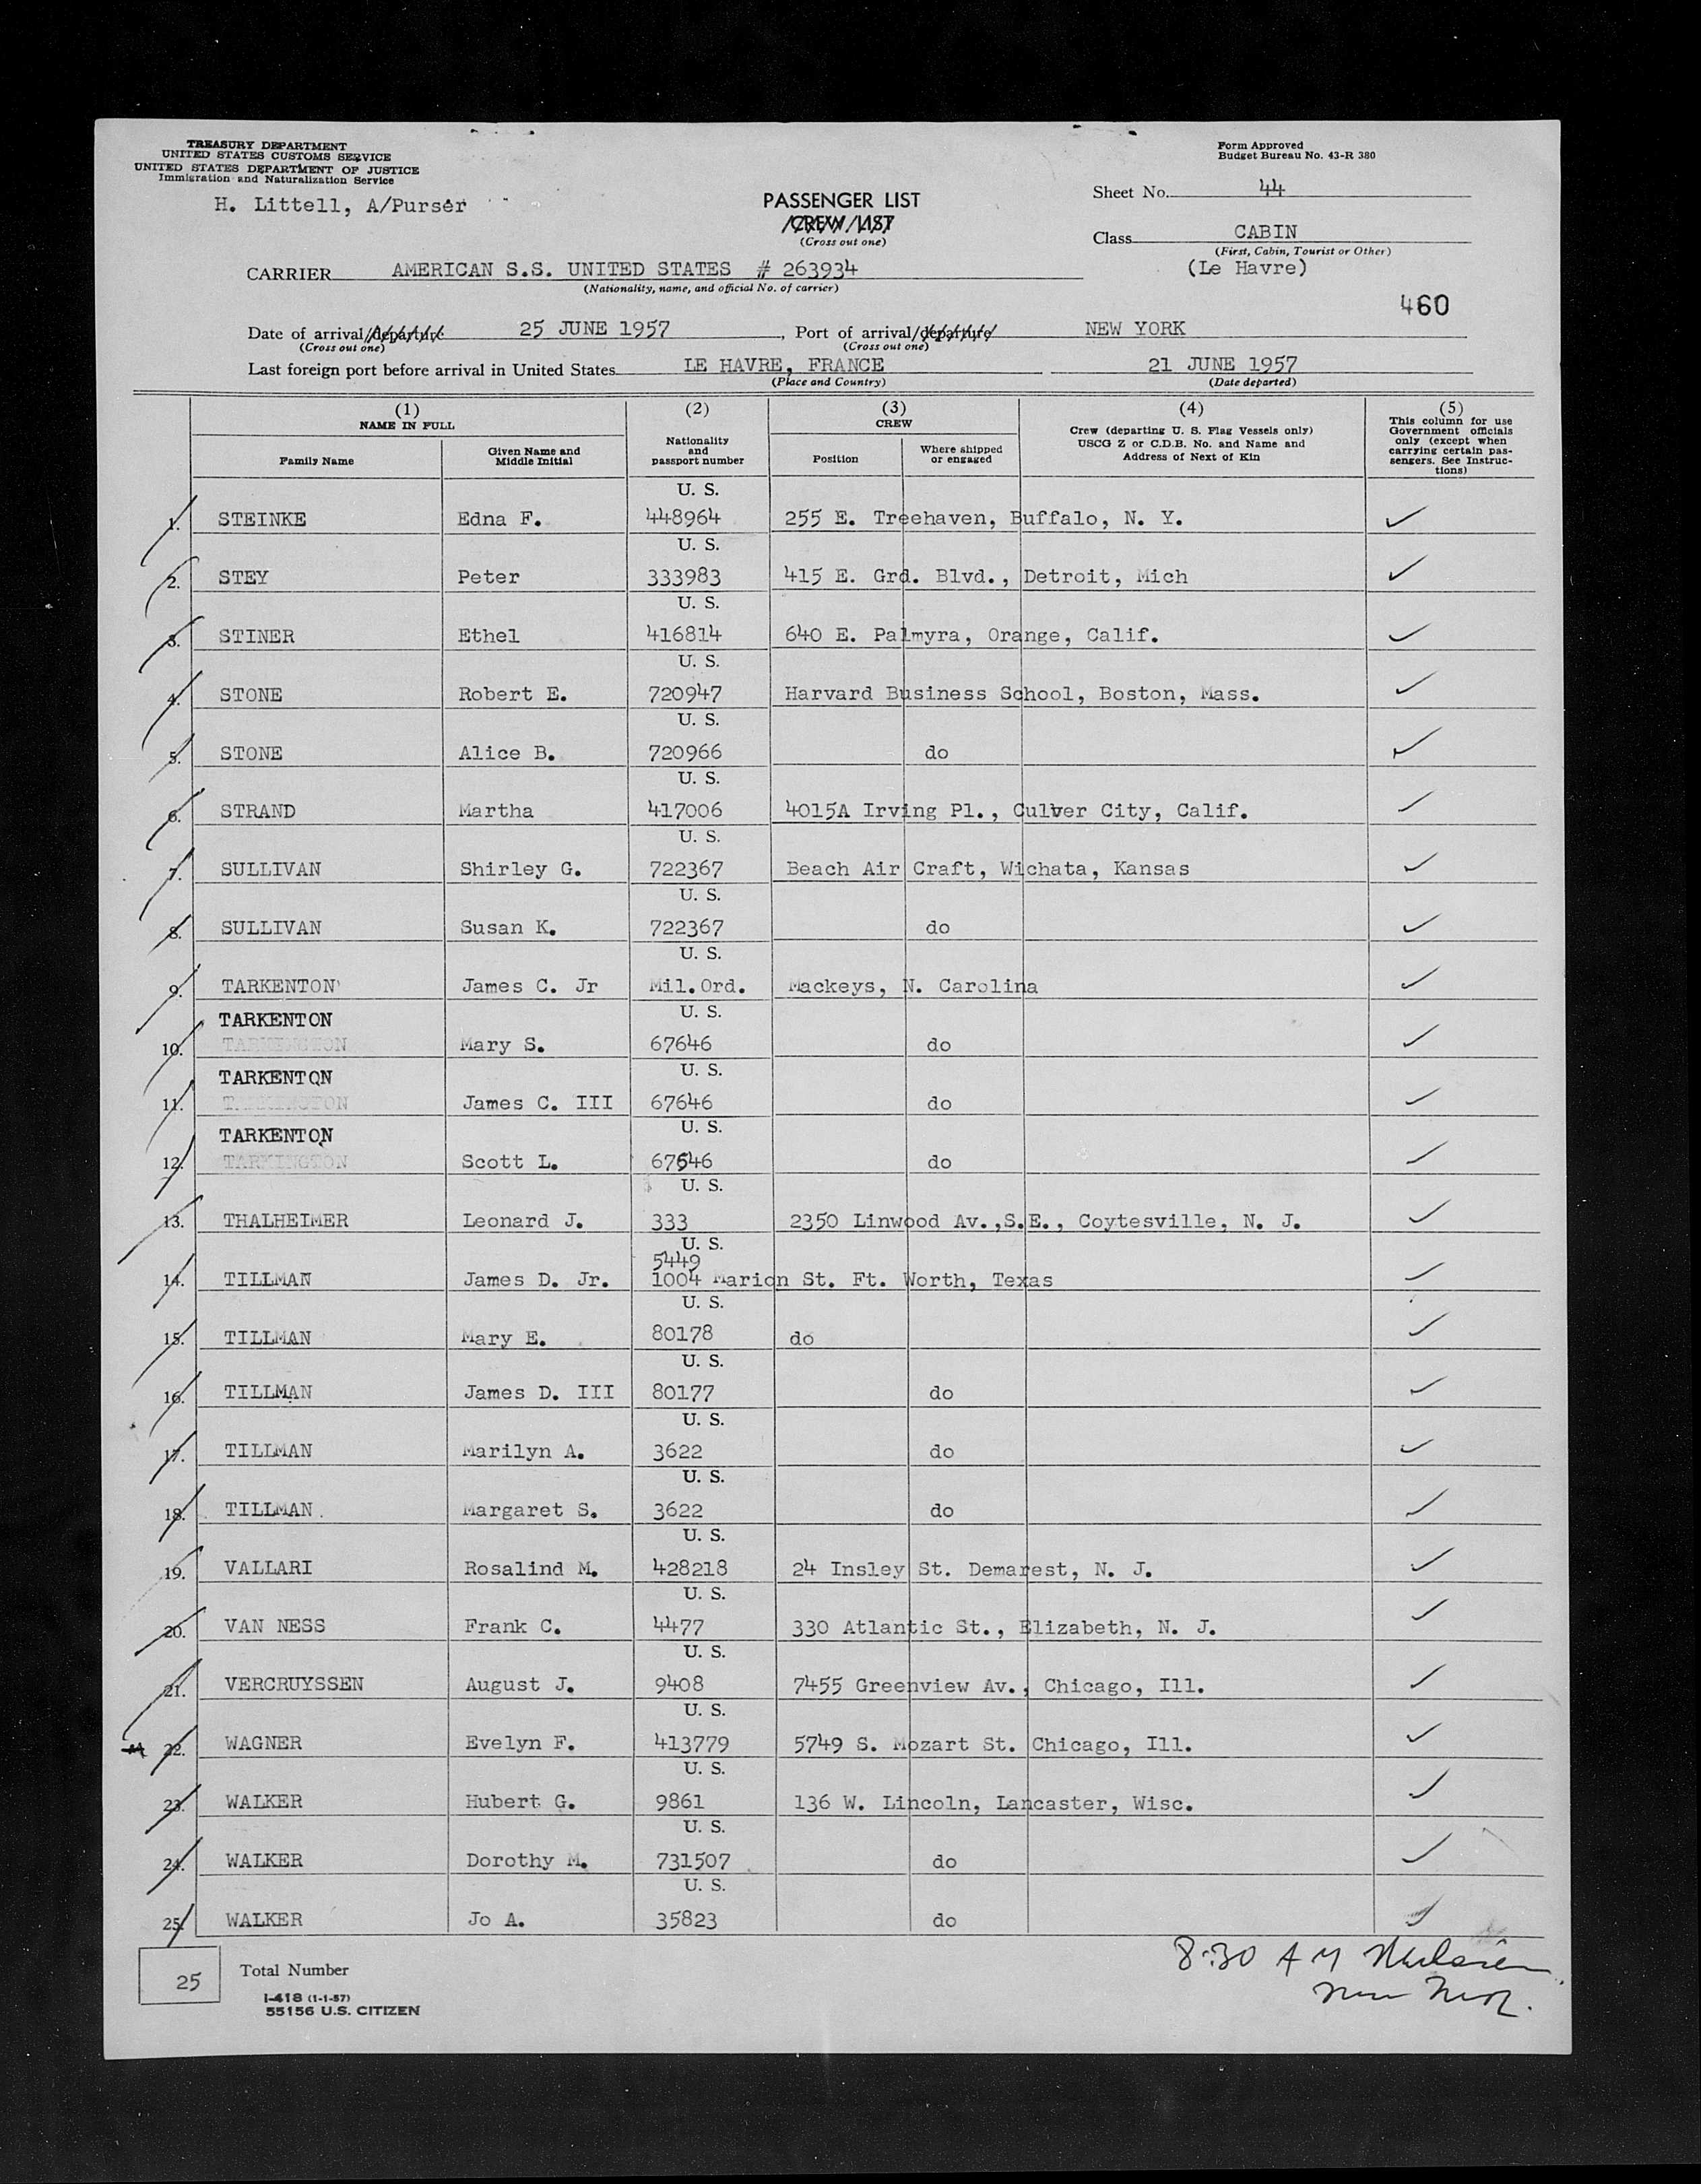 TREASURY DEPARTMENT
UNITED STATES CUSTOMS SERVICE
UNITED STATES DEPARTMENT OF JUSTICE
Immigration and Naturalization Service
H. Littell, A/Purser
Form Approved
Budget Bureau No. 43-R 380
PASSENGER LIST
CREW LIST
(Cross out one)
Sheet No. 44
Class CABIN
(First, Cabin, Tourist or Other)
(Le Havre)
CARRIER AMERICAN S.S. UNITED STATES # 263934
(Nationality, name, and official No. of carrier)
460
Date of arrival/departure 25 JUNE 1957, Port of arrival/departure NEW YORK
(Cross out one) (Cross out one)
Last foreign port before arrival in United States LE HAVRE, FRANCE 21 JUNE 1957
(Place and Country) (Date departed)
(1) NAME IN FULL
Family Name
Given Name and Middle Initial
(2)
Nationality and passport number
(3) CREW
Position
Where shipped or engaged
(4)
Crew (departing U. S. Flag Vessels only)
USCG Z or C.D.B. No. and Name and
Address of Next of Kin
(5)
This column for use
Government officials
only (except when
carrying certain pas-
sengers. See Instruc-
tions)
U. S.
1. STEINKE Edna F. 448964 255 E. Treehaven, Buffalo, N. Y.
U. S.
2. STEY Peter 333983 415 E. Grd. Blvd., Detroit, Mich
U. S.
3. STINER Ethel 416814 640 E. Palmyra, Orange, Calif.
U. S.
4. STONE Robert E. 720947 Harvard Business School, Boston, Mass.
U. S.
5. STONE Alice B. 720966 do
U. S.
6. STRAND Martha 417006 4015A Irving Pl., Culver City, Calif.
U. S.
7. SULLIVAN Shirley G. 722367 Beach Air Craft, Wichata, Kansas
U. S.
8. SULLIVAN Susan K. 722367 do
U. S.
9. TARKENTON James C. Jr Mil.Ord. Mackeys, N. Carolina
TARKENTON U. S.
10. TARKINGTON Mary S. 67646 do
TARKENTON U. S.
11. TARKINGTON James C. III 67646 do
TARKENTON U. S.
12. TARKINGTON Scott L. 67646 do
U. S.
13. THALHEIMER Leonard J. 333 2350 Linwood Av.,S.E., Coytesville, N. J.
U. S.
5449
14. TILLMAN James D. Jr. 1004 Marion St. Ft. Worth, Texas
U. S.
15. TILLMAN Mary E. 80178 do
U. S.
16. TILLMAN James D. III 80177 do
U. S.
17. TILLMAN Marilyn A. 3622 do
U. S.
18. TILLMAN Margaret S. 3622 do
U. S.
19. VALLARI Rosalind M. 428218 24 Insley St. Demarest, N. J.
U. S.
20. VAN NESS Frank C. 4477 330 Atlantic St., Elizabeth, N. J.
U. S.
21. VERCRUYSSEN August J. 9408 7455 Greenview Av., Chicago, Ill.
U. S.
22. WAGNER Evelyn F. 413779 5749 S. Mozart St. Chicago, Ill.
U. S.
23. WALKER Hubert G. 9861 136 W. Lincoln, Lancaster, Wisc.
U. S.
24. WALKER Dorothy M. 731507 do
U. S.
25. WALKER Jo A. 35823 do
25 Total Number
I-418 (1-1-57)
55156 U.S. CITIZEN
8:30 AM